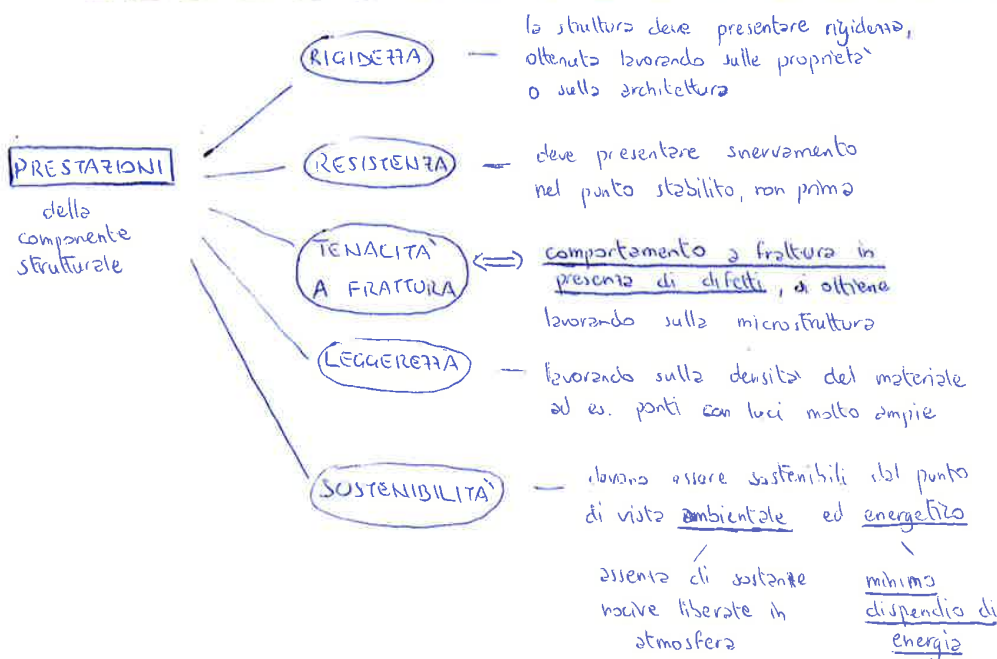 PRESTAZIONI
della
componente
strutturale
RIGIDEZZA — la struttura deve presentare rigidezza,
ottenuta lavorando sulle proprietà
o sulla architettura
RESISTENZA — deve presentare snervamento
nel punto stabilito, non prima
TENACITÀ
A FRATTURA
<=> comportamento a frattura in
presenza di difetti, si ottiene
lavorando sulla microstruttura
LEGGEREZZA — lavorando sulla densità del materiale
ad es. ponti con luci molto ampie
SOSTENIBILITÀ — devono essere sostenibili dal punto
di vista ambientale ed energetico
assenza di sostanze
nocive liberate in
atmosfera
minimo
dispendio di
energia